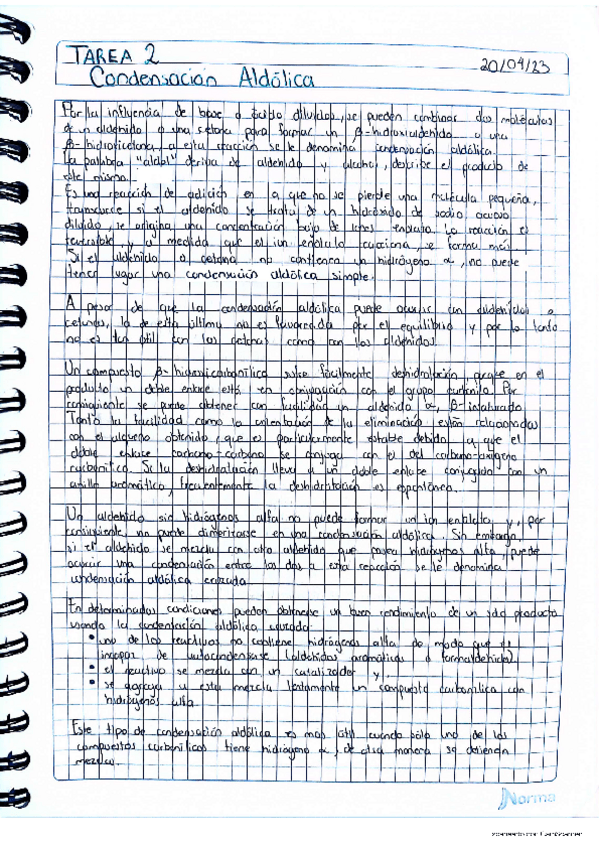 TAREA 2
20/04/23
Condensación Aldólica
Por la influencia de base o ácido diluidos, se pueden combinar dos moléculas
de un aldehído o una cetona para formar un β-hidroxialdehído o una
β-hidroxicetona, a esta reacción se le denomina condensación aldólica.
La palabra "aldol" deriva de aldehído y alcohol, describe el producto de
ella misma.
Es una reacción de adición en a que no se pierde una molécula pequeña,
si el aldehído se trata de un hidróxido de sodio acuoso
diluido, se origina una concentración baja de iones enolato. La reacción es
reversible, y a medida que el ion enolato reacciona, se forma más.
Si el aldehído o cetona no contienen un hidrógeno α, no puede
tener lugar una condensación aldólica simple.
A pesar de que la condensación aldólica puede ocurrir con aldehídos o
cetonas, la de esta última no es favorecida por el equilibrio y por lo tanto
no es tan útil con las cetonas como con los aldehídos.
Un compuesto β- sufre fácilmente deshidratación porque en el
producto un doble enlace está en conjugación con el grupo carbonilo. Por
consiguiente se puede obtener con facilidad un aldehído α, β-insaturado.
Tanto la facilidad como la orientación de la eliminación están relacionadas
con el alqueno obtenido, que es particularmente estable debido a que el
doble enlace carbono-carbono se conjuga con el del carbono-oxígeno
carbonílico. Si la deshidratación lleva a un doble enlace conjugado con un
anillo aromático, frecuentemente la deshidratación es espontánea.
Un aldehído sin hidrógenos alfa no puede formar un ion enolato y, por
consiguiente, no puede dimerizarse en una condensación aldólica. Sin embargo,
si el aldehído se mezcla con otro aldehído que posea hidrógenos alfa, puede
ocurrir una condensación entre los dos a esta reacción se le denomina
condensación aldólica cruzada.
En determinadas condiciones pueden obtenerse un buen rendimiento de un solo producto
usando la condensación aldólica cruzada:
• uno de los reactivos no contiene hidrógenos alfa de modo que es
incapaz de autocondensarse (aldehídos aromáticos o formaldehído)
• el reactivo se mezcla con un catalizador y
• se agrega a esta mezcla lentamente un compuesto carbonílico con
hidrógenos alfa.
Este tipo de condensación aldólica es más útil cuando sólo uno de los
compuestos carbonílicos tiene hidrógeno α, de otra manera se obtienen
mezclas.
Norma